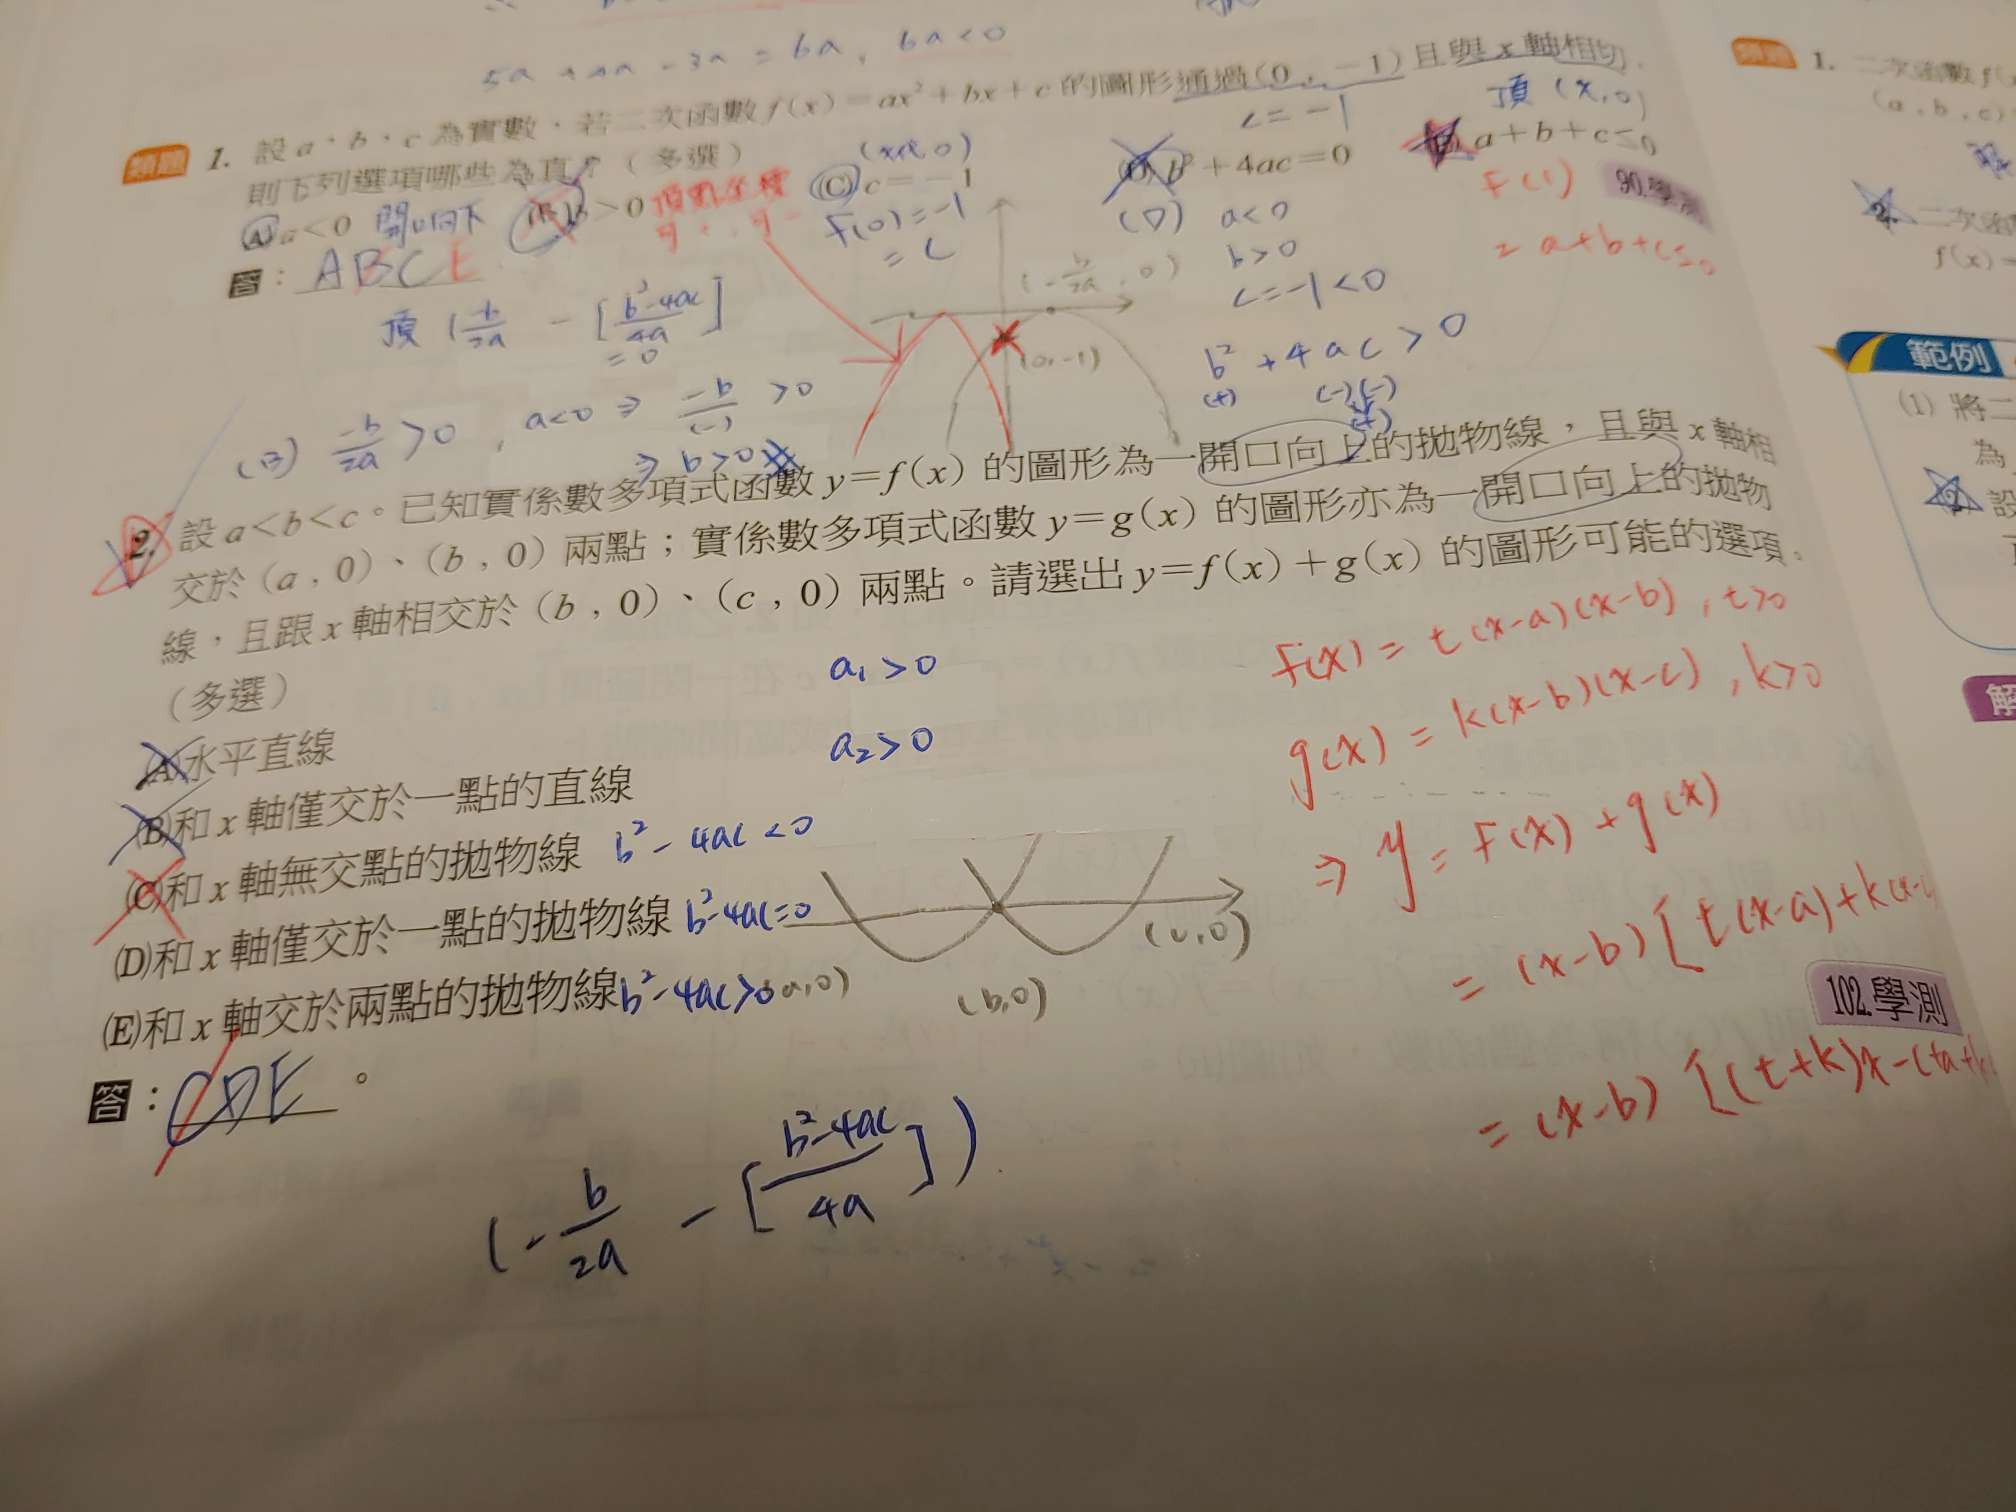 5a + 4a - 3a = 6a, 6a<0
類題 1. 設 a、b、c 為實數,若二次函數 f(x)=ax²+bx+c 的圖形通過(0,-1)且與 x 軸相切,
c=-1
頂 (x,0)
則下列選項哪些為真?(多選)
(A) a<0 開口向下 (B) b>0 頂點坐標
(C) c=-1
f(0)=-1
=c
(D) b²+4ac=0 (E) a+b+c≤0
90.學測
f(1)
= a+b+c≤0
答: ABCE
頂 (-b/2a - [b²-4ac/4a]
=0
(-b/2a, 0)
(0,-1)
(D) a<0
b>0
c=-1<0
b²+4ac>0
(+) (-)(-)
(+)
(B) -b/2a >0, a<0 ⇒ -b/(-) >0
⇒ b>0
2. 設 a<b<c。已知實係數多項式函數 y=f(x) 的圖形為一開口向上的拋物線,且與 x 軸相
交於(a,0)、(b,0)兩點;實係數多項式函數 y=g(x) 的圖形亦為一開口向上的拋物
線,且跟 x 軸相交於(b,0)、(c,0)兩點。請選出 y=f(x)+g(x) 的圖形可能的選項。
(多選)
a₁>0
a₂>0
(A)水平直線
(B)和 x 軸僅交於一點的直線
(C)和 x 軸無交點的拋物線 b²-4ac<0
(D)和 x 軸僅交於一點的拋物線 b²-4ac=0
(E)和 x 軸交於兩點的拋物線 b²-4ac>0
(a,0)
(b,0)
(c,0)
f(x) = t(x-a)(x-b), t>0
g(x) = k(x-b)(x-c), k>0
⇒ y = f(x)+g(x)
= (x-b)[t(x-a)+k(x-
102.學測
= (x-b)[(t+k)x-(ta+k
答: CDE 。
(-b/2a - [b²-4ac/4a])
類題 1. 二次函數 f(x
(a,b,c)
2. 二次函
f(x)=
範例
(1) 將二
為
2. 設
解